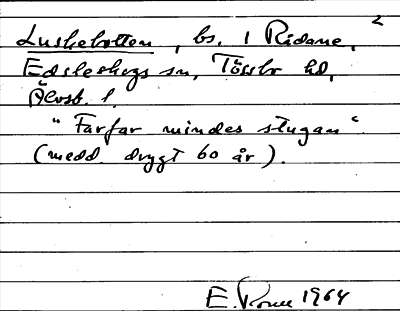 2
Luskebotten, bs. 1 Ridane,
Edsleskogs sn, Tössbo hd,
Älvsb. l.
"Farfar mindes stugan"
(medd. drygt 60 år).
E. 1964